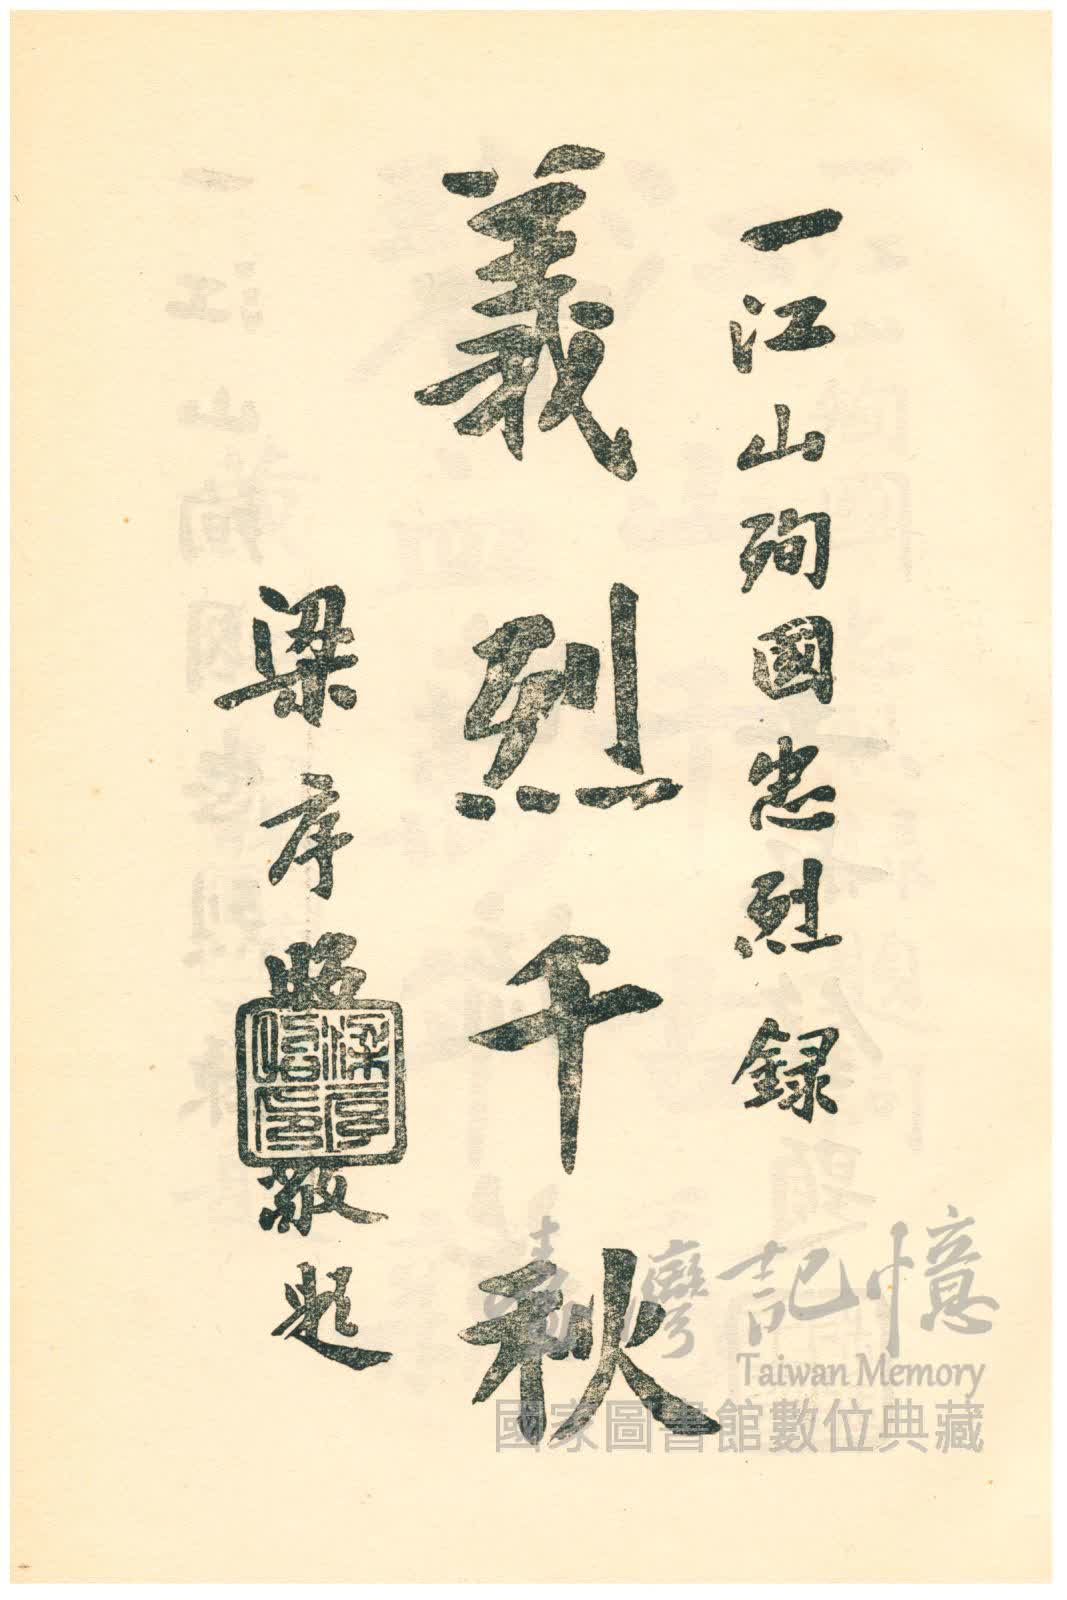 一江山殉國忠烈録
義烈千秋
梁序昭敬題
梁序昭印
臺灣記憶
Taiwan Memory
國家圖書館數位典藏